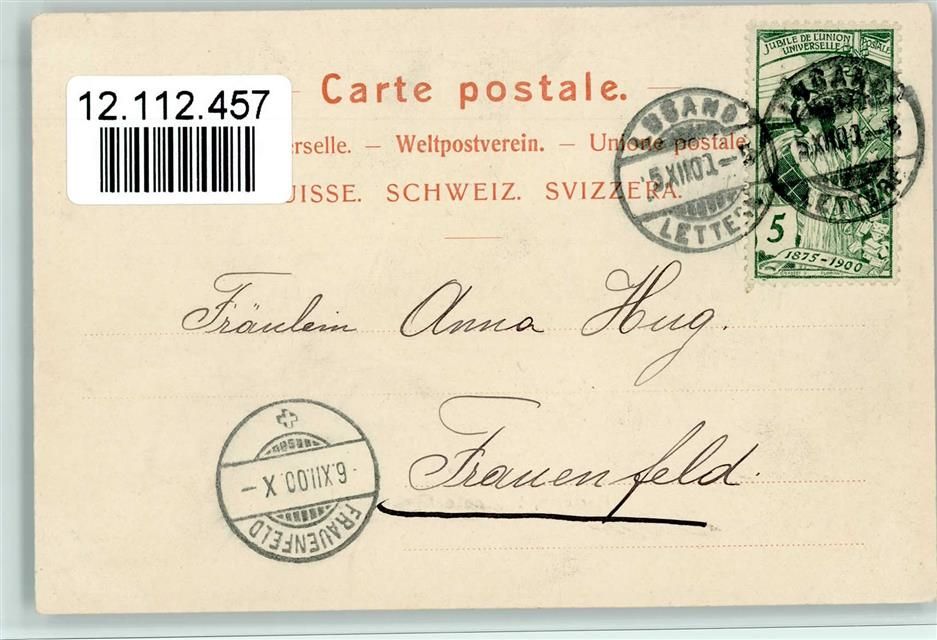 12.112.457
Carte postale.
erselle. — Weltpostverein. — Unione postale
UISSE. SCHWEIZ. SVIZZERA.
JUBILÉ DE L'UNION
UNIVERSELLE POSTALE
5
1875-1900
LETTERE
LETTERE
Fräulein Anna Hug.
Frauenfeld.
6.XII.00.X–
FRAUENFELD